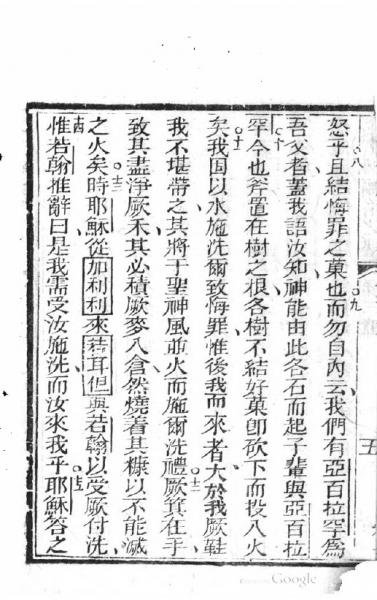 怒乎八且結悔罪之菓也九而勿自內云我們有亞百拉罕為
吾父者蓋我語汝知神能由此各石而起子輩與亞百拉
罕十今也斧置在樹之根各樹不結好菓卽砍下而投入火
矣十一我固以水施洗爾致悔罪惟後我而來者大於我厥鞋
我不堪帶之其將于聖神風並火而施爾洗禮十二厥箕在手
致其盡淨厥禾其必積厥麥入倉然燒着其糠以不能滅
之火矣十三時耶穌從加利利來若耳但與若翰以受厥付洗
十四惟若翰推辭曰是我需受汝施洗而汝來我乎十五耶穌答之
五
Google